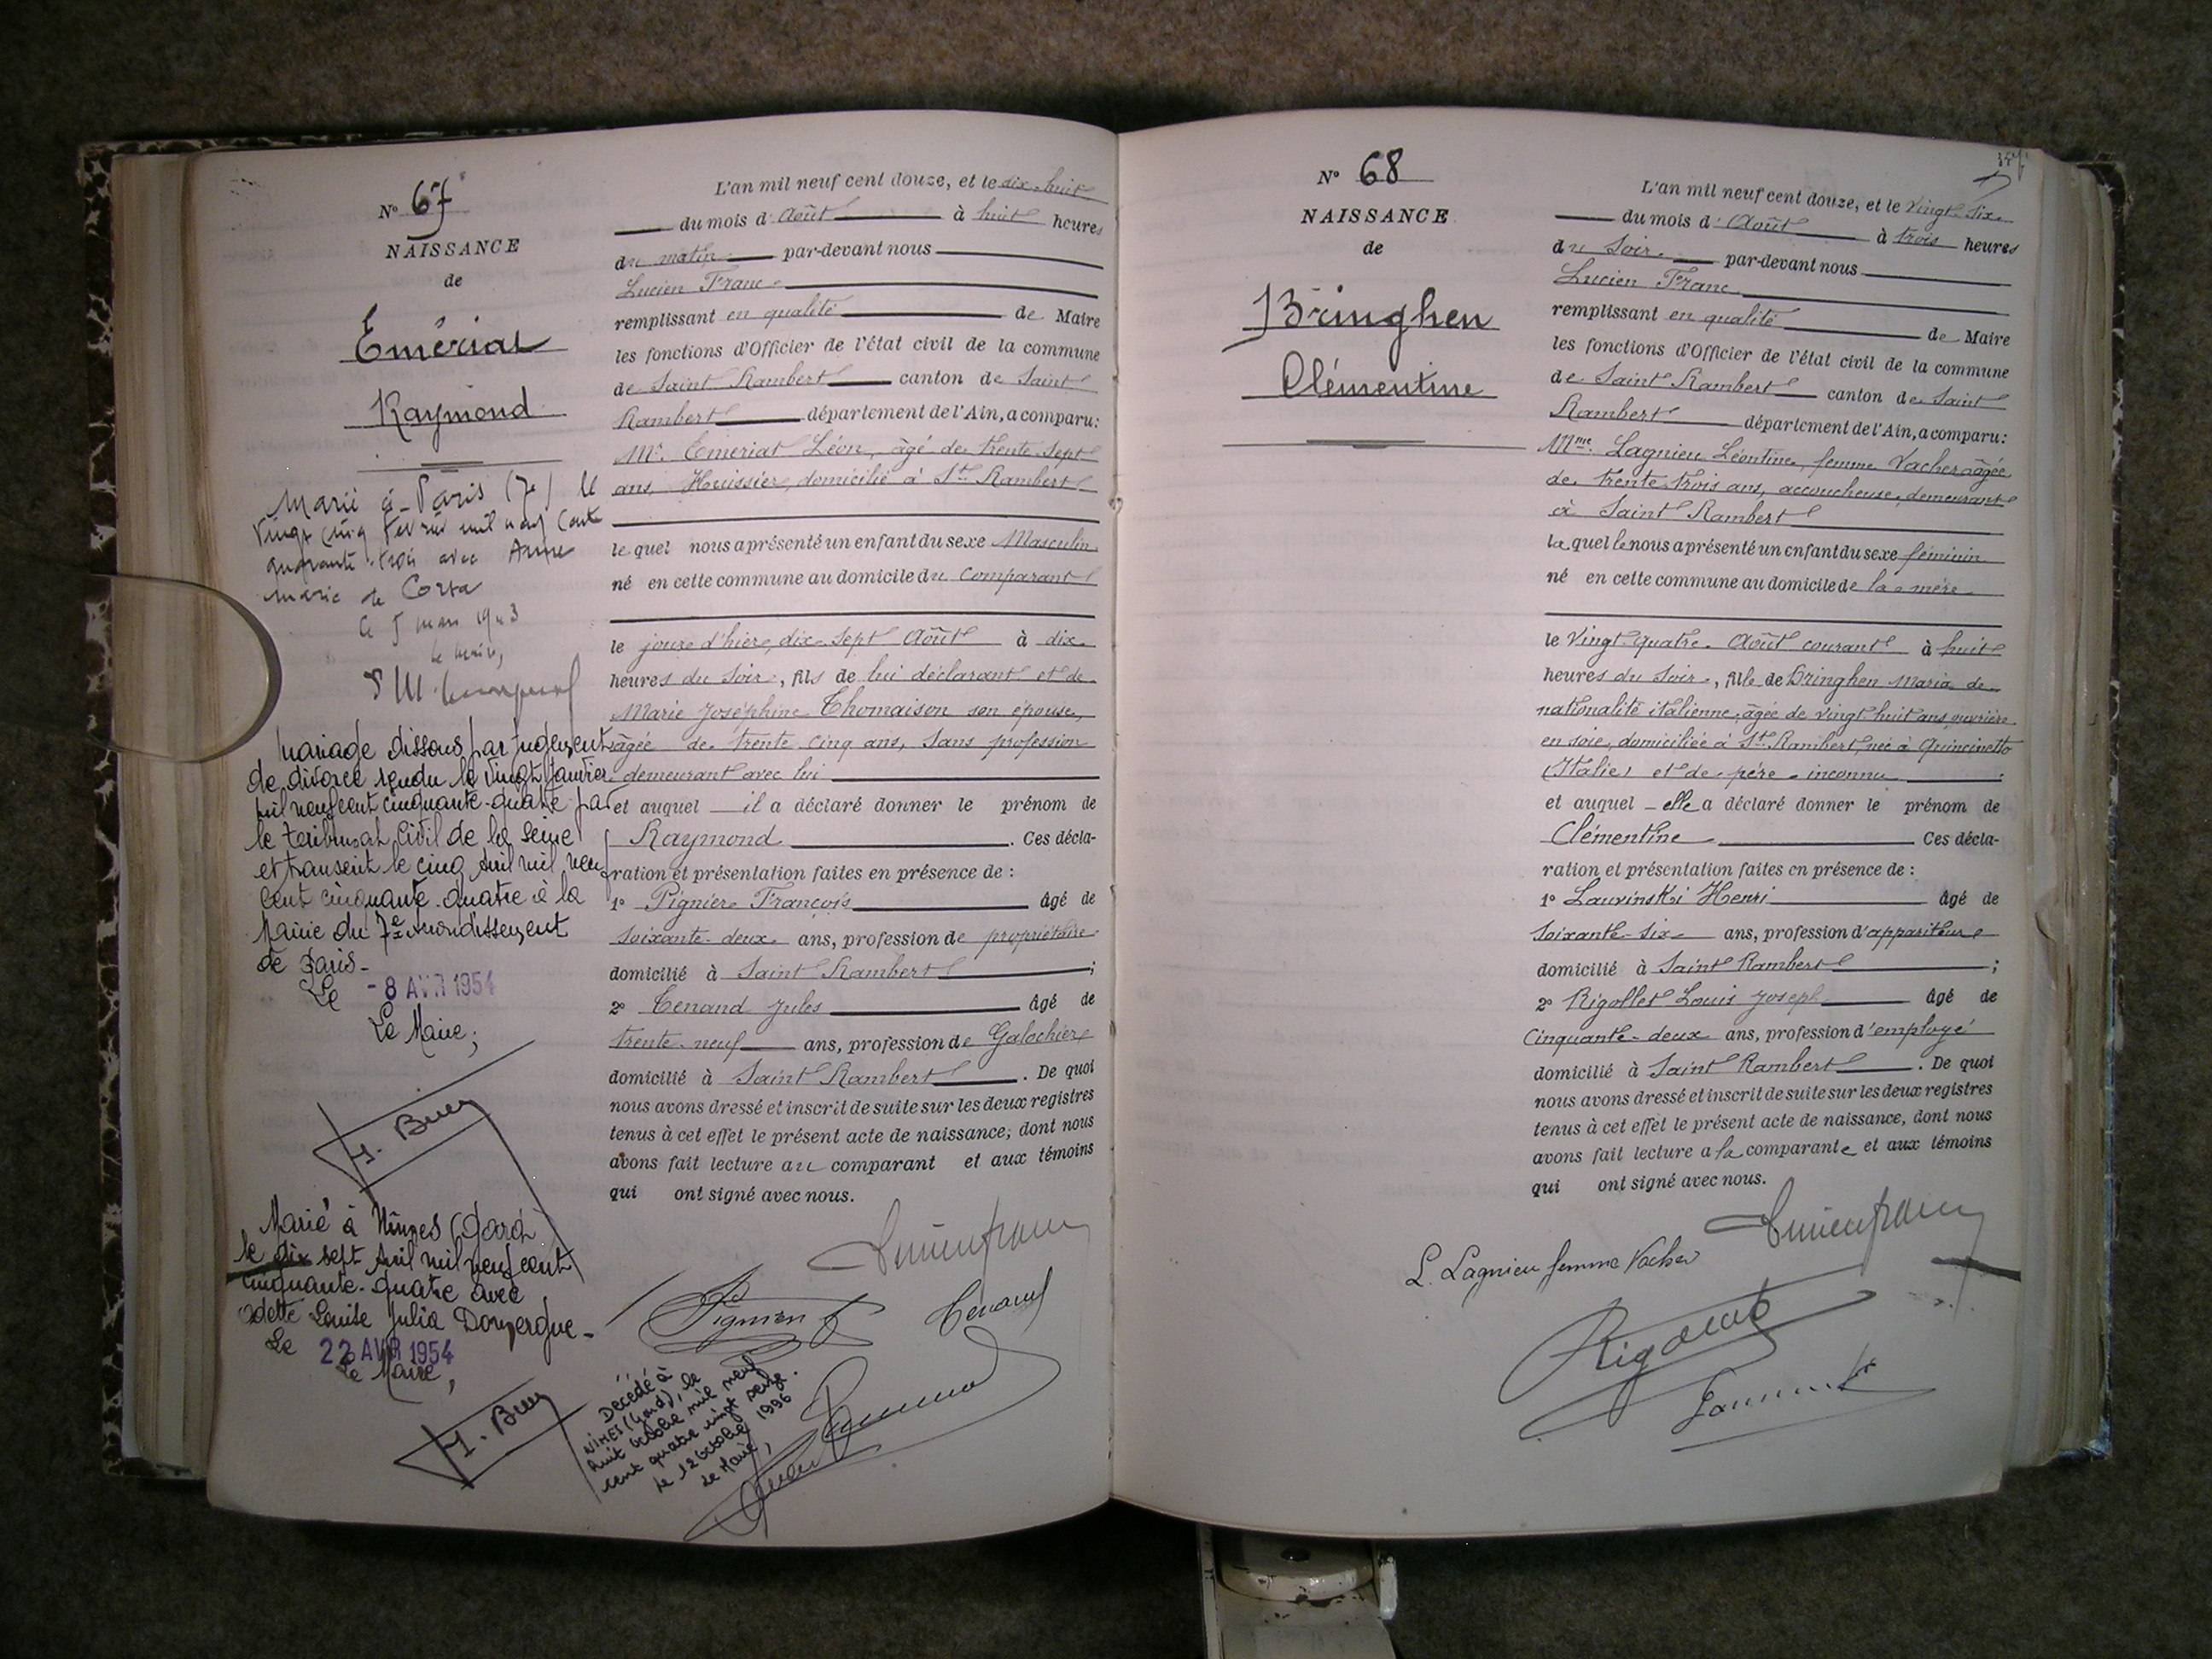 N° 67
NAISSANCE
de
Emériat
Raymond
Marié à Paris (7e) le
vingt cinq février mil neuf cent
quarante-trois avec Anne
Marie de Corta
Le 5 mars 1943
Le maire,
Mariage dissous par jugement
de divorce rendu le vingt janvier
mil neuf cent cinquante-quatre par
le tribunal civil de la Seine
et transcrit le cinq Avril mil neuf
cent cinquante-quatre à la
Mairie du 7e arrondissement
de Paris-
Le -8 AVR 1954
Le Maire,
Marié à Nîmes (Gard)
le dix sept Avril mil neuf cent
cinquante-quatre avec
Odette Louise Julia Domergue-
Le 22 AVR 1954
Le Maire,
L'an mil neuf cent douze, et le dix-huit
du mois d'Août à huit heures
du matin par-devant nous
Lucien Franc
remplissant en qualité de Maire
les fonctions d'Officier de l'état civil de la commune
de Saint Rambert canton de Saint
Rambert département de l'Ain, a comparu:
Mr. Emeriat Léon, âgé de trente sept
ans, Huissier, domicilié à St. Rambert
le quel nous a présenté un enfant du sexe Masculin
né en cette commune au domicile du comparant
le jour d'hier, dix-sept Août à dix
heures du soir, fils de lui déclarant et de
Marie Joséphine Thomaison son épouse,
âgée de trente cinq ans, sans profession
demeurant avec lui
et auquel il a déclaré donner le prénom de
Raymond. Ces décla-
ration et présentation faites en présence de :
1° Pignier François âgé de
soixante-deux ans, profession de propriétaire
domicilié à Saint Rambert ;
2° Tenand Jules âgé de
trente-neuf ans, profession de Galochier
domicilié à Saint Rambert. De quoi
nous avons dressé et inscrit de suite sur les deux registres
tenus à cet effet le présent acte de naissance, dont nous
avons fait lecture au comparant et aux témoins
qui ont signé avec nous.
Lucien franc
Pignier f
Tenand
Décédé à
NIMES (Gard), le
huit octobre mil neuf
cent quatre vingt seize.
Le 12 octobre 1996
Le Maire,
N° 68
NAISSANCE
de
Bringhen
Clémentine
L'an mil neuf cent douze, et le Vingt-six
du mois d'Août à trois heures
du soir par-devant nous
Lucien Franc
remplissant en qualité de Maire
les fonctions d'Officier de l'état civil de la commune
de Saint Rambert canton de Saint
Rambert département de l'Ain, a comparu:
Mme. Lagnieu Léontine, femme Vacher âgée
de trente-trois ans, accoucheuse, demeurant
à Saint Rambert
la quelle nous a présenté un enfant du sexe féminin
né en cette commune au domicile de la mère
le Vingt quatre Août courant à huit
heures du soir, fille de Bringhen Maria de
nationalité italienne, âgée de vingt huit ans, ouvrière
en soie, domiciliée à St. Rambert, née à Quincinetto
(Italie) et de père inconnu
et auquel elle a déclaré donner le prénom de
Clémentine Ces décla-
ration et présentation faites en présence de :
1° Lauvinski Henri âgé de
soixante-six ans, profession d'appariteur
domicilié à Saint Rambert ;
2° Rigollet Louis Joseph âgé de
Cinquante-deux ans, profession d'employé
domicilié à Saint Rambert. De quoi
nous avons dressé et inscrit de suite sur les deux registres
tenus à cet effet le présent acte de naissance, dont nous
avons fait lecture à la comparante et aux témoins
qui ont signé avec nous.
Lucien franc
L. Lagnieu femme Vacher